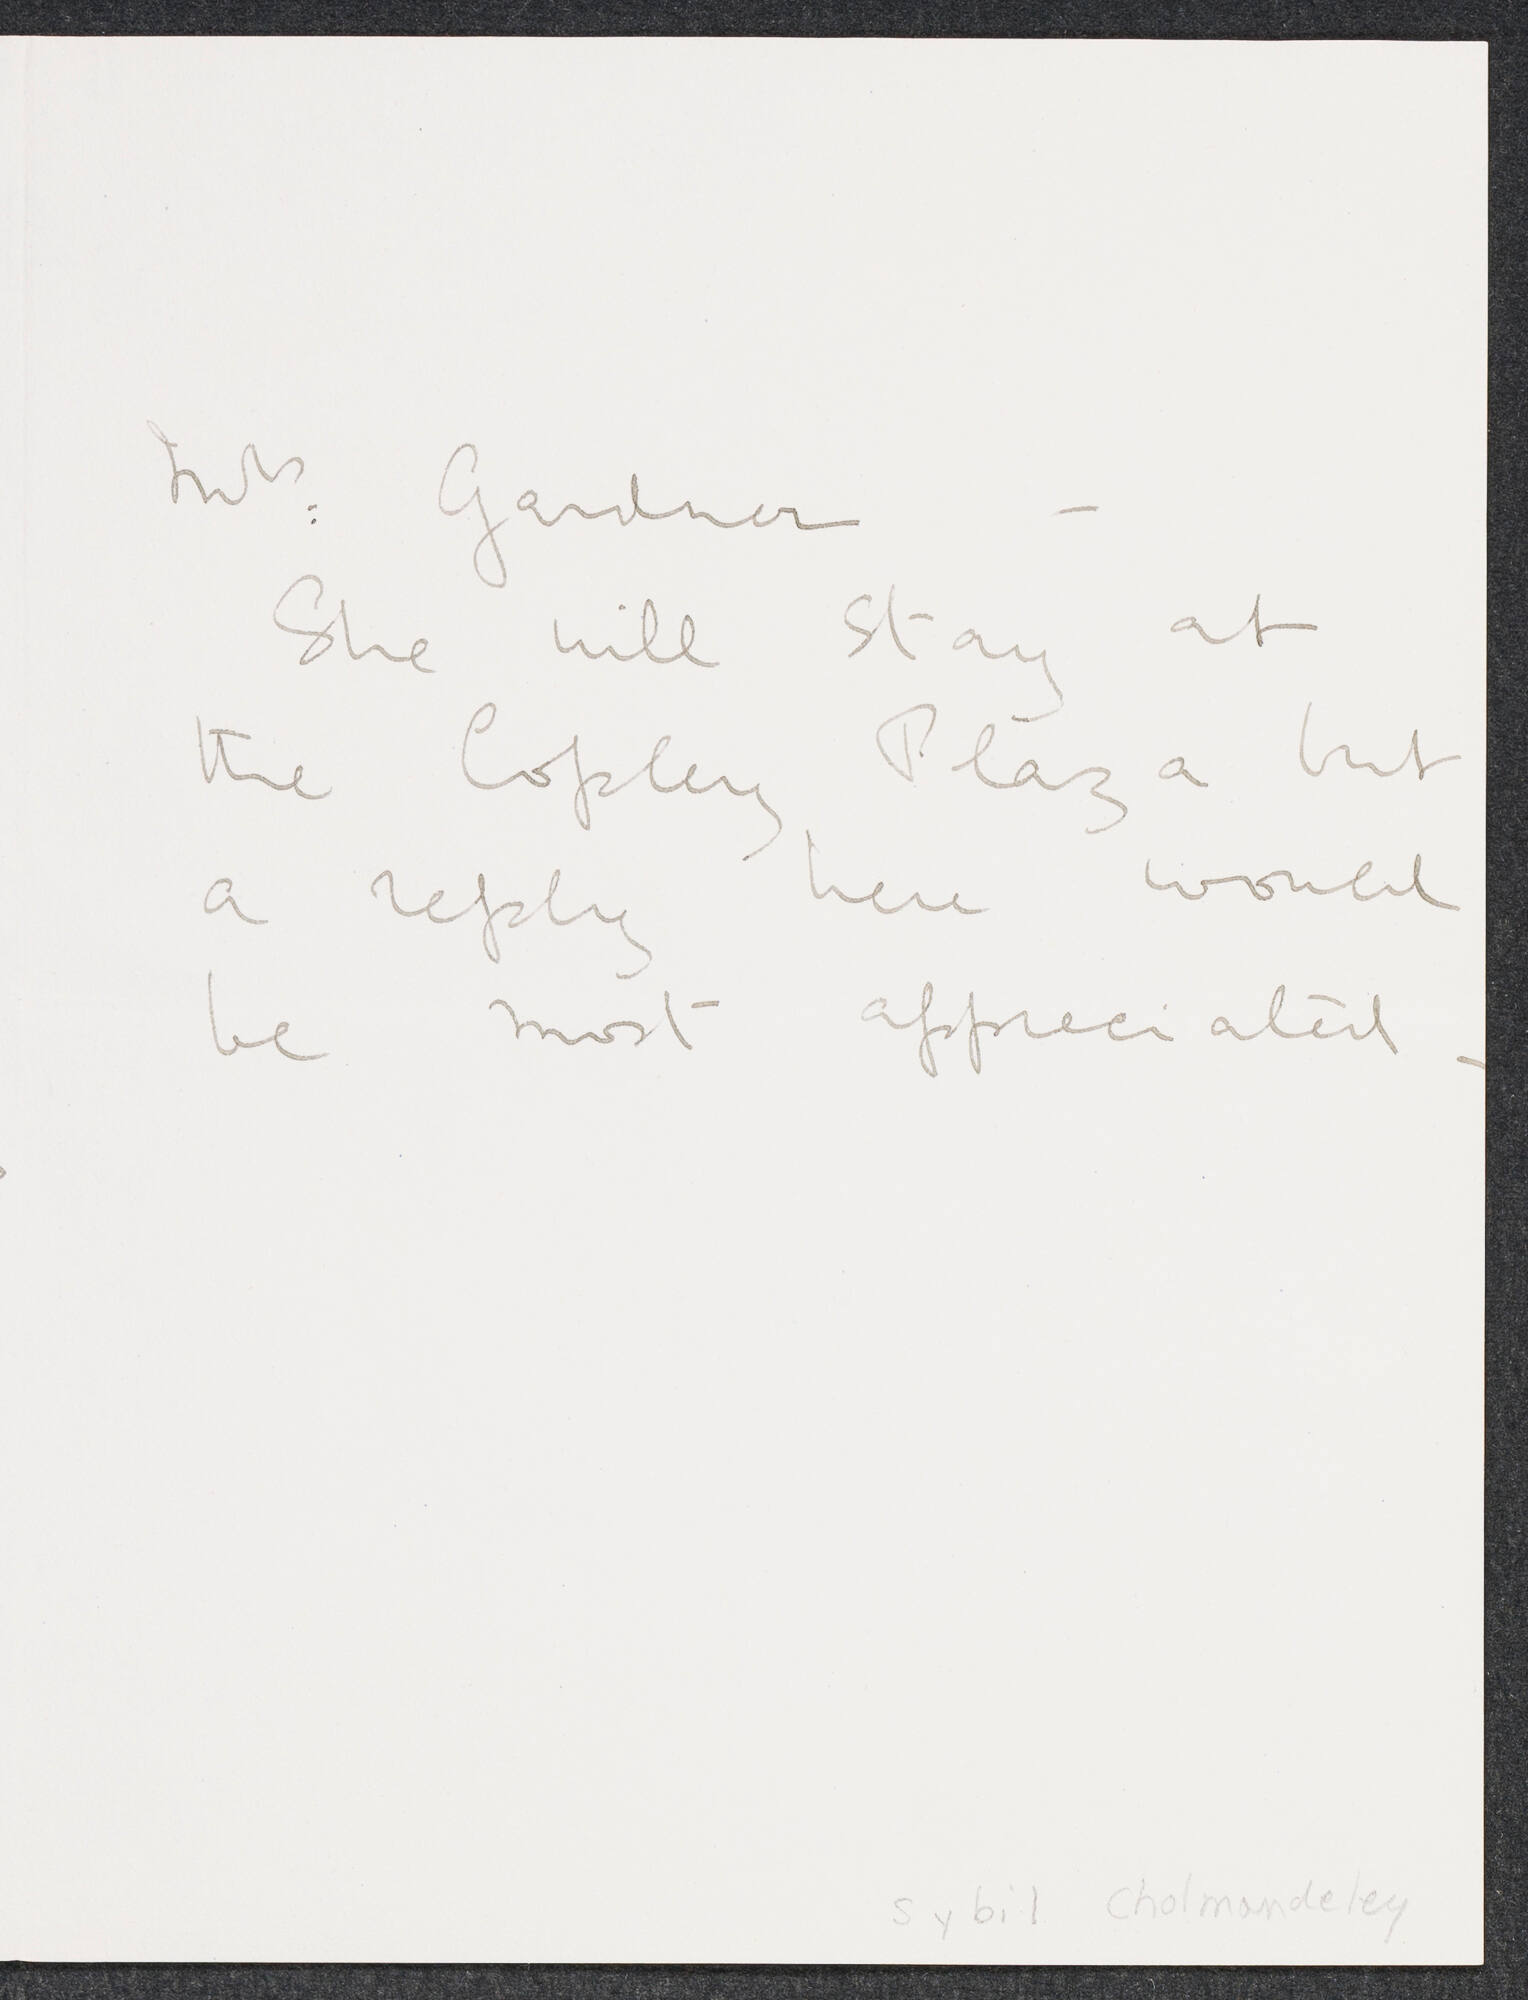 Mrs. Gardner —
She will stay at
the Copley Plaza but
a reply here would
be most appreciated —
Sybil Cholmondeley